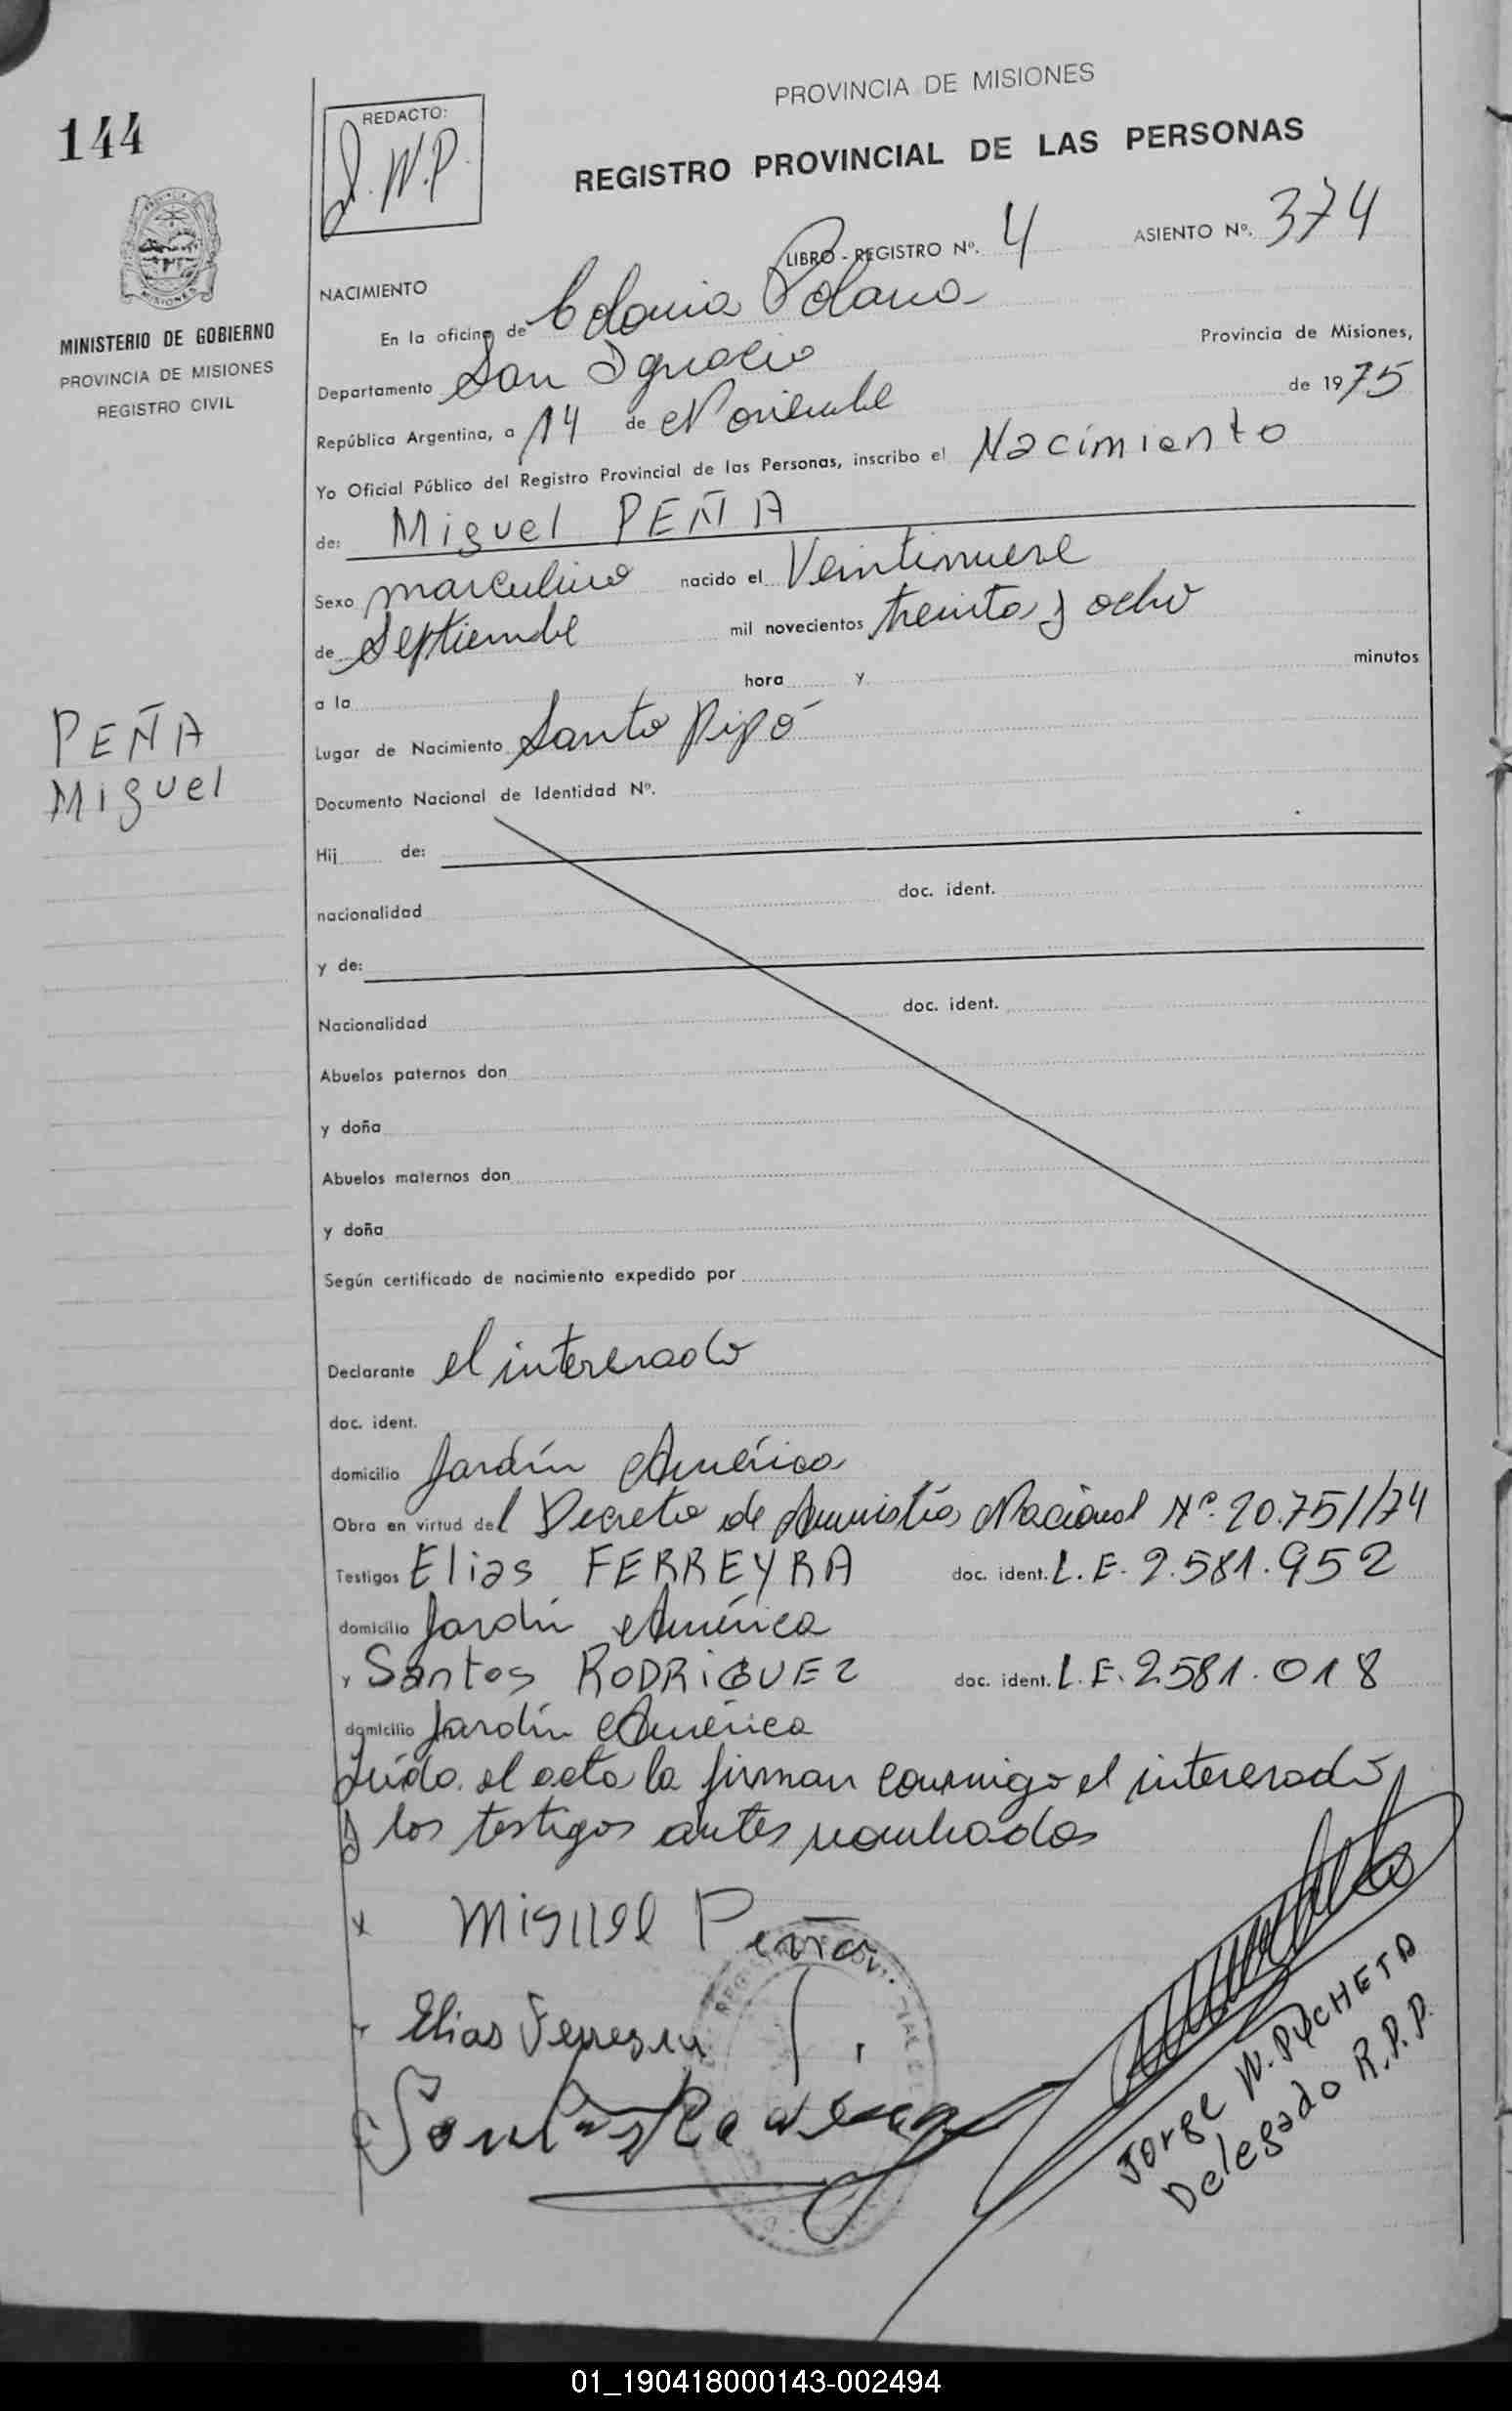 144
PROVINCIA
MISIONES
MINISTERIO DE GOBIERNO
PROVINCIA DE MISIONES
REGISTRO CIVIL
PEÑA
Miguel
REDACTO:
J.W.P.
PROVINCIA DE MISIONES
REGISTRO PROVINCIAL DE LAS PERSONAS
LIBRO - REGISTRO Nº. 4 ASIENTO Nº. 374
NACIMIENTO
En la oficina de Colonia Polana
Provincia de Misiones,
Departamento San Ignacio
República Argentina, a 14 de Noviembre de 1975
Yo Oficial Público del Registro Provincial de las Personas, inscribo el Nacimiento
de: Miguel PEÑA
Sexo masculino nacido el Veintinueve
de Septiembre mil novecientos treinta y ocho
a la hora y minutos
Lugar de Nacimiento Santo Pipó
Documento Nacional de Identidad Nº.
Hij de:
nacionalidad doc. ident.
y de:
Nacionalidad doc. ident.
Abuelos paternos don
y doña
Abuelos maternos don
y doña
Según certificado de nacimiento expedido por
Declarante el interesado
doc. ident.
domicilio Jardín América
Obra en virtud del Decreto de Amnistía Nacional Nº. 20.751/74
Testigos Elias FERREYRA doc. ident. L.E. 2.581.952
domicilio Jardín América
y Santos RODRIGUEZ doc. ident. L.E. 2581.018
domicilio Jardín América
Leída el acta la firman conmigo el interesado
y los testigos antes nombrados
x Miguel Peña
Elias Ferreyra
Santos Rodriguez
Jorge W. PYCHETA
Delegado R.P.P.
01_190418000143-002494